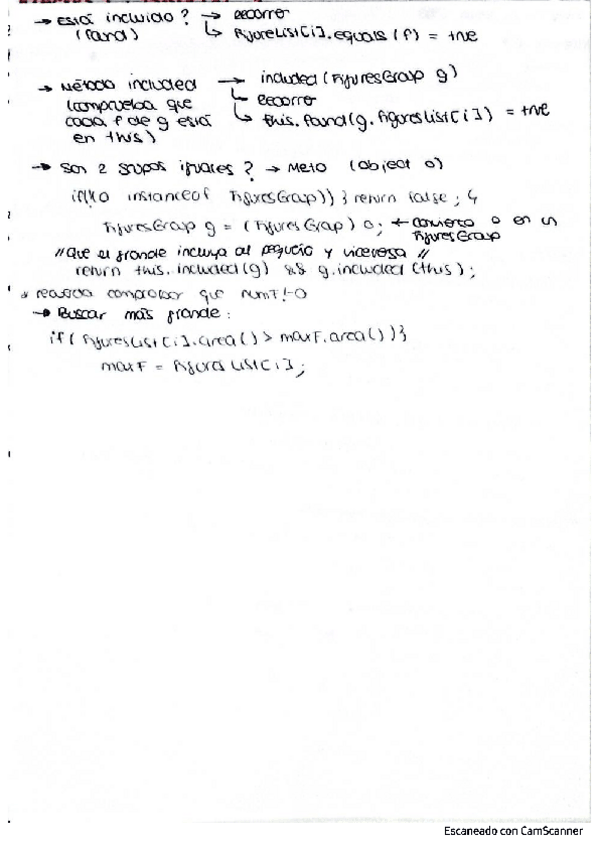 → Está incluido? → Recorrer
(found) ↳ figureList[i].equals(f) = true
→ Método included → included(FiguresGroup g)
(comprueba que ↳ Recorrer
cada f de g está ↳ this.found(g.figuresList[i]) = true
en this)
→ Son 2 grupos iguales? → Meto (Object o)
if(!(o instanceof FiguresGroup)) { return false; }
FiguresGroup g = (FiguresGroup) o; ← convierto o en un
FiguresGroup
// Que el grande incluya al pequeño y viceversa //
return this.included(g) && g.included(this);
* recuerda comprobar que numF!=0
→ Buscar más grande:
if(figuresList[i].area() > maxF.area()){
maxF = figuresList[i];
Escaneado con CamScanner